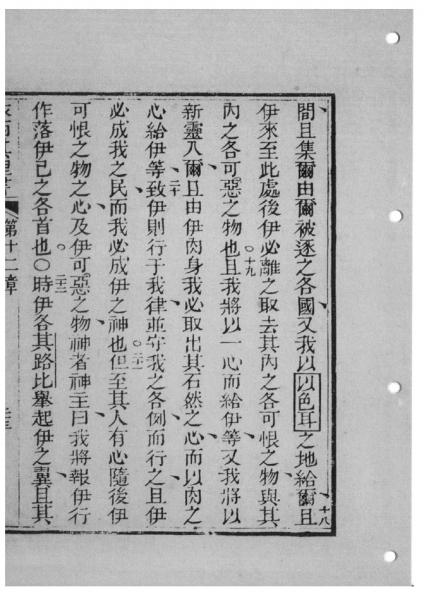 間且集爾由爾被逐之各國又我以以色耳之地給爾且
十八
伊來至此處後伊必離之取去其內之各可恨之物與其
內之各可惡之物也且我將以一心而給伊等又我將以
十九
新靈入爾且由伊肉身我必取出其石然之心而以肉之
心給伊等致伊則行于我律並守我之各例而行之且伊
二十
必成我之民而我必成伊之神也但至其人有心隨後伊
二一
可恨之物之心及伊可惡之物神者神主曰我將報伊行
作落伊己之各首也〇時伊各其路比舉起伊之翼且其
二二
第十二章